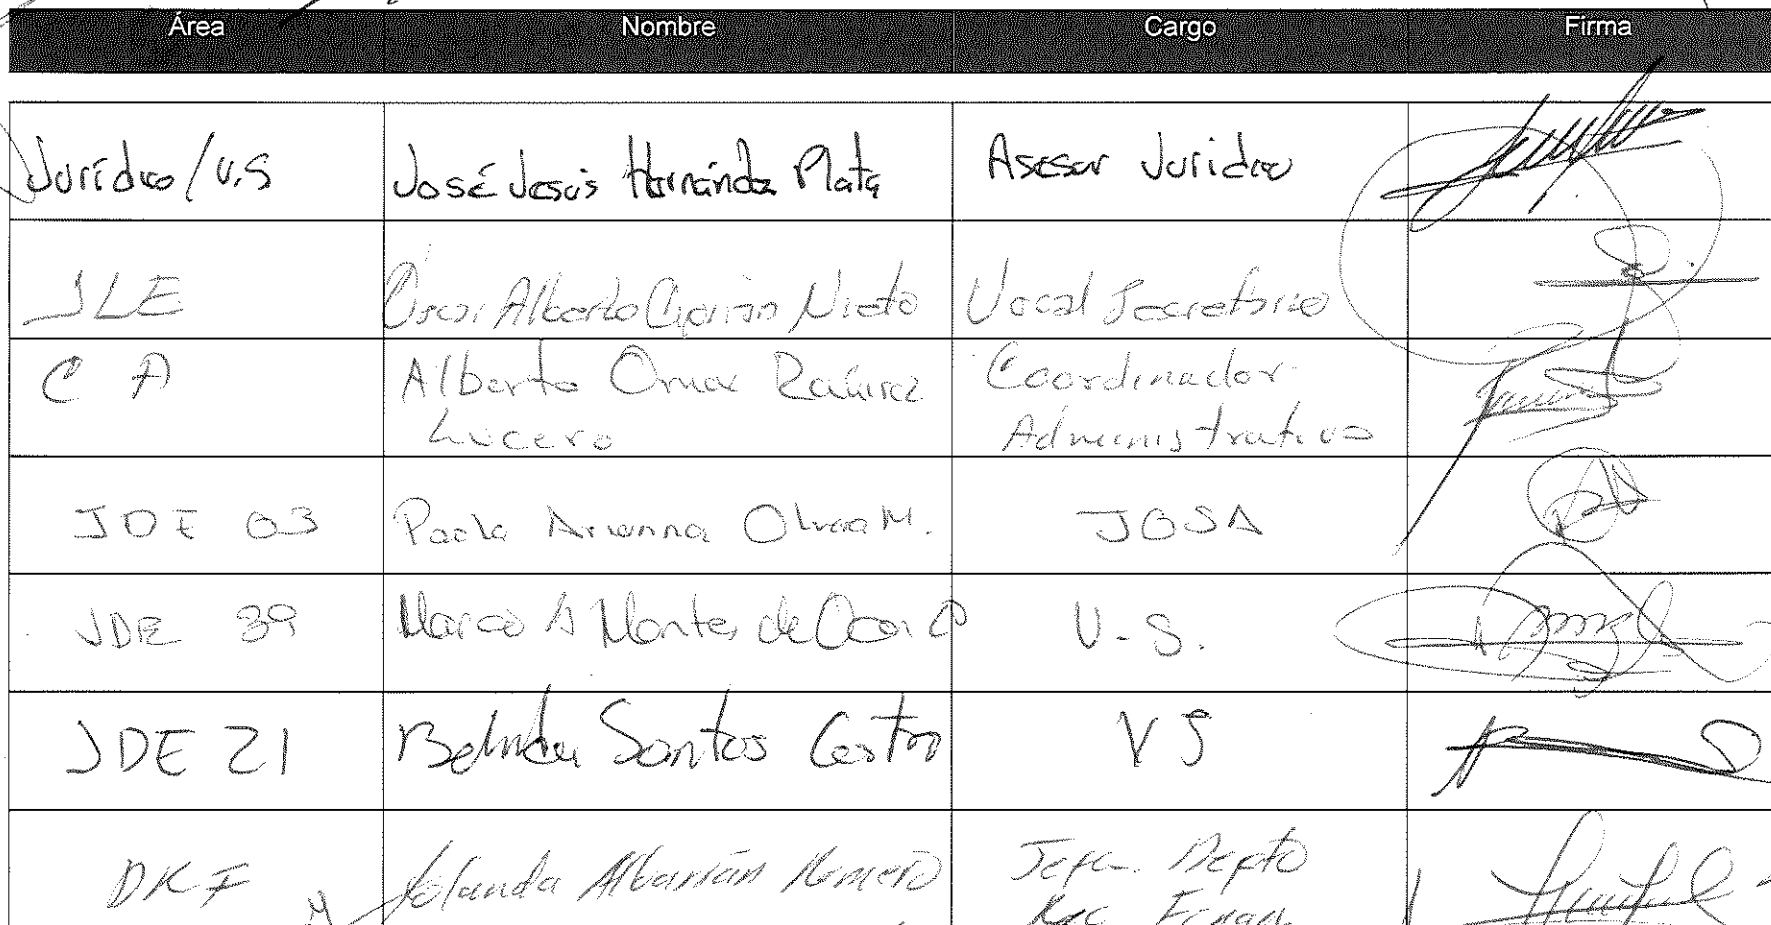 Área Nombre Cargo Firma
Jurídico/V.S José Jesús Hernández Plata Asesor Jurídico
JLE Óscar Alberto Ciprián Nieto Vocal Secretario
C A Alberto Omar Ramírez Coordinador
Lucero Administrativo
JDE 03 Paola Arianna Olvera M. JOSA
JDE 39 Marco A Montes de Oca
V-S.
JDE 21 Belinda Santos Castro VS
Yolanda Albarrán Romero Jefa Depto
Rec Finan